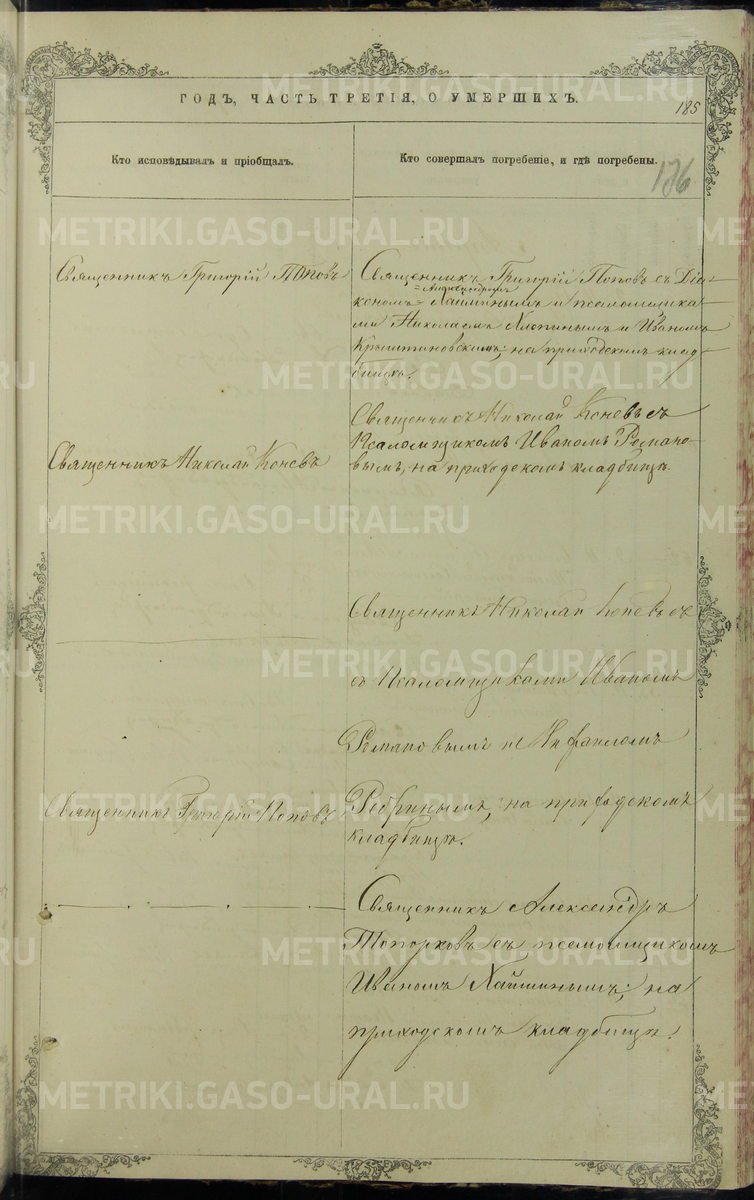 ГОДЪ, ЧАСТЬ ТРЕТІЯ, О УМЕРШИХЪ.
185
Кто исповѣдывалъ и пріобщалъ.
Кто совершалъ погребеніе, и гдѣ погребены.
126
Священникъ Григорій Поповъ
Священникъ Григорій Поповъ съ Діа-
=Александромъ
кономъ= Хаминымъ и псаломщика-
ми Николаемъ Хлопинымъ и Иваномъ
на приходскомъ клад-
бищѣ.
Священникъ Николай Коневъ
Священникъ Николай Коневъ съ
Псаломщикомъ Иваномъ Романо-
вымъ, на приходскомъ кладбищѣ.
Священникъ Николай Коневъ съ
съ Псаломщиками Иваномъ
Романовымъ и
на приходскомъ
кладбищѣ.
Священникъ Григорій Поповъ
Священникъ Александръ
Топорковъ съ псаломщикомъ
Иваномъ на
приходскомъ кладбищѣ.
METRIKI.GASO-URAL.RU